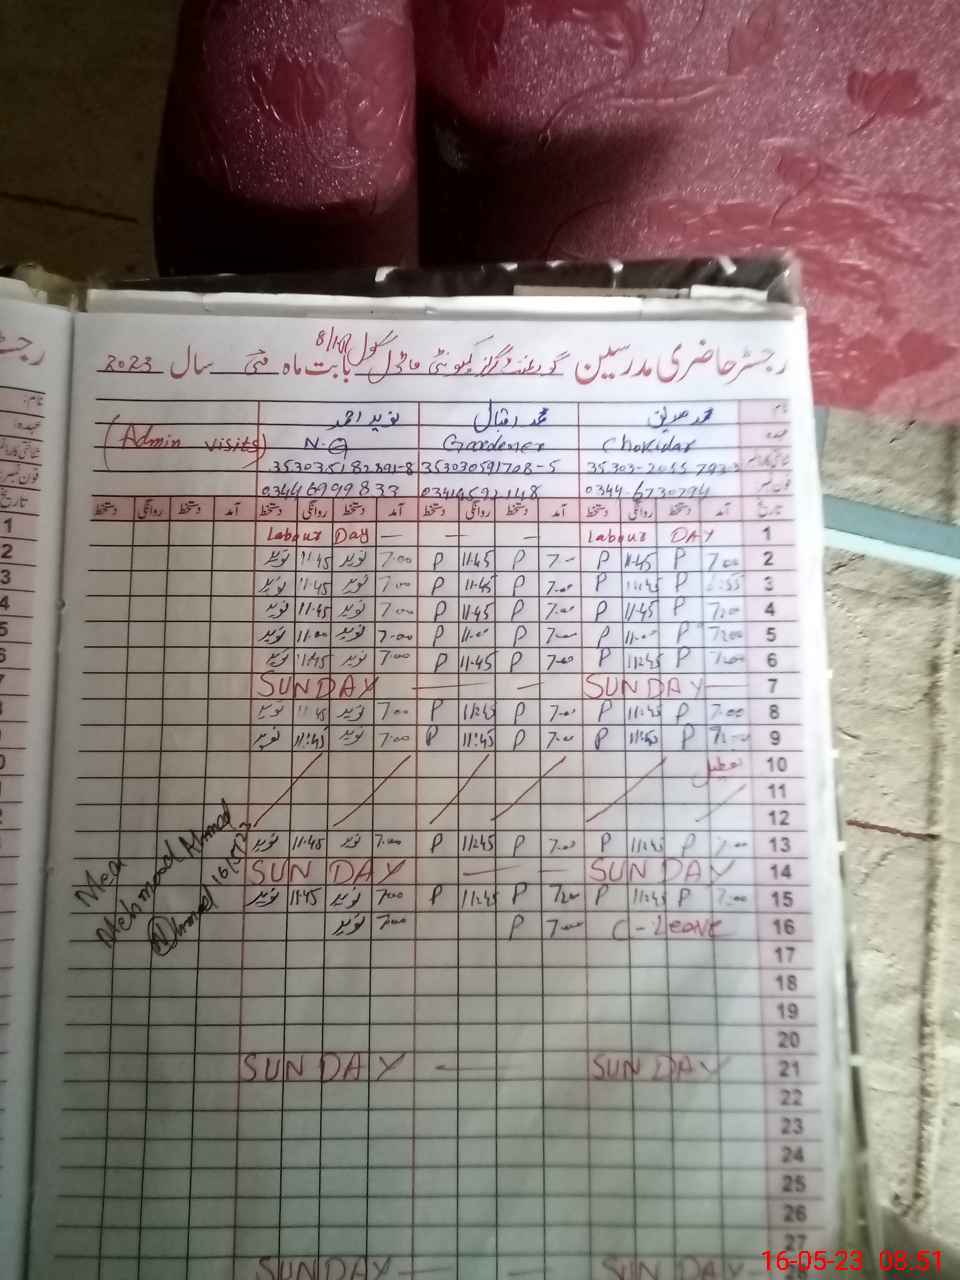 رجسٹر حاضری مدرسین گورنمنٹ گرلز کمیونٹی ماڈل سکول 8/ بابت ماہ مئی سال 2023
نام محمد صدیق محمد اقبال نوید احمد
عہدہ Chokidar Gardener N.Q (Admin visits)
35303-2055792-3 353030591708-5 353035182891-8
فون نمبر 0344-6730794 03446999833
تاریخ آمد دستخط روانگی دستخط آمد دستخط روانگی دستخط آمد دستخط روانگی دستخط آمد دستخط روانگی دستخط
1 Labour DAY — — — Labour Day
2 7:00 P 11:45 P 7:00 P 11:45 P 7:00 نوید 11:45 نوید
3 6:55 P 11:45 P 7:00 P 11:45 P 7:00 نوید 11:45 نوید
4 7:00 P 11:45 P 7:00 P 11:45 P 7:00 نوید 11:45 نوید
5 7:00 P 11:00 P 7:00 P 11:00 P 7:00 نوید 11:00 نوید
6 7:00 P 11:45 P 7:00 P 11:45 P 7:00 نوید 11:45 نوید
7 SUNDAY — — — SUNDAY
8 7:00 P 11:45 P 7:00 P 11:45 P 7:00 نوید 11:45 نوید
9 7:00 P 11:45 P 7:00 P 11:45 P 7:00 نوید 11:45 نوید
10 تعطیل
11
12
13 7:00 P 11:45 P 7:00 P 11:45 P 7:00 نوید 11:45 نوید
14 SUNDAY — — SUNDAY
15 7:00 P 11:45 P 7:00 P 11:45 P 7:00 نوید 11:45 نوید
16 C-Leave 7:00 P 7:00 نوید
17
18
19
20
21 SUNDAY — SUNDAY
22
23
24
25
26
27
SUNDAY — SUNDAY
Mea
Mehmood Ahmad
Ahmad 16/5/23
16-05-23 08:51